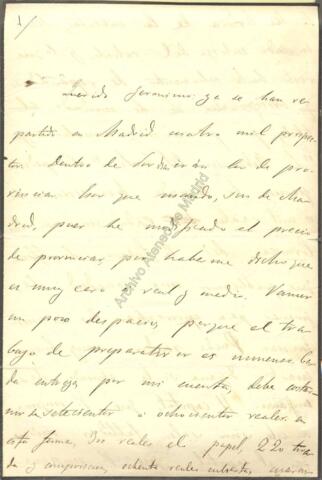 1/
Querido Geronimo: ya se han re
partido en Madrid cuatro mil prospec
tos. Dentro de dos dias irán los de pro
vincias. Los que mando, son de Ma
drid, pues he modificado el precio
de provincias, por haberme dicho que
es muy caro el real y medio. Vamos
un poco despacio, porque el tra
bajo de preparativos es inmenso. Ca
da entrega por mi cuenta, debe costar
me de setecientos a ochocientos reales en
esta forma. 300 reales el papel, 220 tira
da y composicion, ochenta reales cubiertas,
Archivo Ateneo de Madrid